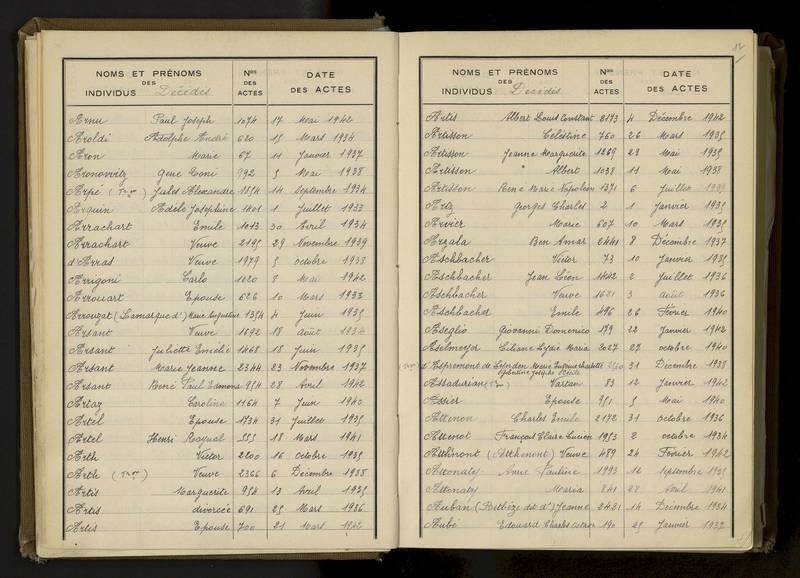 NOMS ET PRÉNOMS DES INDIVIDUS Décédés Nos DES ACTES DATE DES ACTES
Arnu Paul Joseph 1074 17 Mai 1942
Aroldi Adolphe André 620 15 Mars 1934
Aron Marie 67 11 Janvier 1937
Aronovitz 992 5 Mai 1938
Arpé Jules Alexandre 1854 14 Septembre 1934
Arquin Adèle Joséphine 1401 1 Juillet 1933
Arrachart Emile 1013 30 Avril 1934
Arrachart Veuve 2195 29 Novembre 1939
d'Arras Veuve 1979 5 octobre 1938
Arrigoni Carlo 1020 8 Mai 1942
Arrouart Epouse 626 10 Mars 1933
Arrouzat (Lamarque d') Marie Augustine 1354 4 Juin 1935
Arsant Veuve 1692 18 Août 1934
Arsant Juliette Emélie 1468 18 Juin 1935
Arsant Marie Jeanne 2344 23 Novembre 1937
Arsant René Paul Edmond 954 28 Avril 1942
Artaz Caroline 1164 7 Juin 1940
Artel Epouse 1734 31 Juillet 1935
Artel Henri 555 18 Mars 1941
Arth Victor 2200 16 Octobre 1935
Arth Veuve 2366 6 Décembre 1938
Artis Marguerite 954 13 Avril 1935
Artis divorcée 691 25 Mars 1936
Artis Epouse 700 21 Mars 1942
NOMS ET PRÉNOMS DES INDIVIDUS Décédés Nos DES ACTES DATE DES ACTES
Artis Albert Louis Constant 2173 4 Décembre 1942
Artisson Célestine 760 26 Mars 1935
Artisson Jeanne Marguerite 1269 28 Mai 1935
Artisson Albert 1038 11 Mai 1938
Artisson René Marie Napoléon 1371 6 Juillet 1939
Artz Georges Charles 2 1 Janvier 1935
Arvier Marie 607 10 Mars 1935
Arzala Ben Amar 2441 8 Décembre 1937
Aschbacher Victor 73 10 Janvier 1935
Aschbacher Jean Léon 1442 2 Juillet 1936
Aschbacher Veuve 1621 3 août 1936
Aschbacher Emile 496 26 Février 1940
Aseglio Giovanni Domenico 179 22 Janvier 1942
Aselmeyer Liliane Lydie Maria 2027 27 octobre 1940
d'Aspremont de Lynden Marie 31 Décembre 1938
Assadurian Vartan 83 12 Janvier 1942
Assier Epouse 951 5 Mai 1940
Attenon Charles Emile 2172 31 octobre 1936
Attenot François Claire Lucien 1953 2 octobre 1934
Atthénont (Atthenont) Veuve 489 24 Février 1942
Attonaty Anne Pauline 1993 12 Septembre 1935
Attonaty Maria 841 28 Avril 1941
Auban Jeanne 2421 14 Décembre 1934
Aubé Edouard Charles Octave 190 25 Janvier 1937